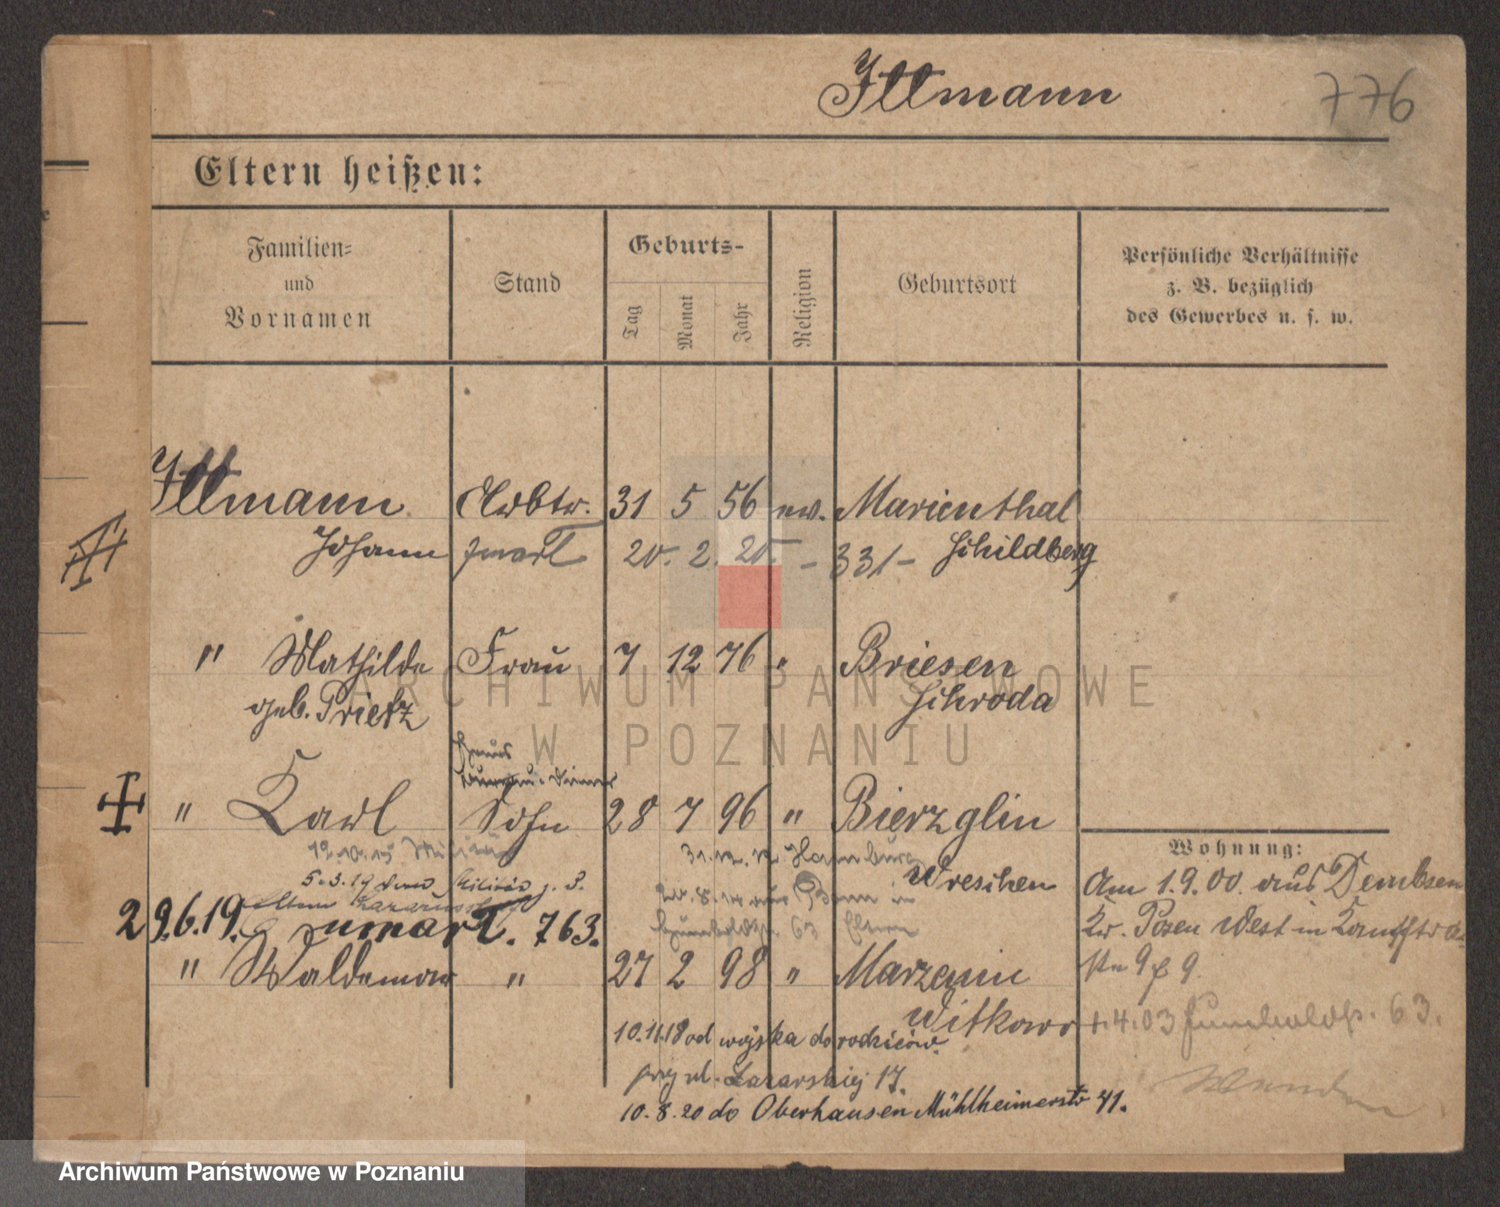 Ittmann
776
Eltern heißen:
Familien=
und
Vornamen
Stand
Geburts-
Tag
Monat
Jahr
Religion
Geburtsort
Persönliche Verhältnisse
z. B. bezüglich
des Gewerbes u. s. w.
Ittmann Arbtr. 31 5 56 ev. Marienthal
Johann zmarł 20. 2. 20. - 331 - Schildberg
" Mathilde Frau 7 12 76 " Briesen
geb. Prietz Schroda
Haus
Diener
" Karl Sohn 28 7 96 " Bierzglin
Wohnung:
31.12.12 Hamburg
5.3.19 vom Militär z. P. Wreschen
Am 1.9.00. aus Dembsen
29.6.19. zumarł. 763.
63 Eltern
Kr. Posen West in Kanalstra
" Waldemar " 27 2 98 " Marzenin
ße 9 9.
Witkowo
1.4.03 Humboldtstr. 63.
10.11.18 od wojska do rodziców.
przy ul. Lazarskiej 17.
10.8.20 do Oberhausen Mühlheimerstr 41.
ARCHIWUM PAŃSTWOWE
W POZNANIU
Archiwum Państwowe w Poznaniu